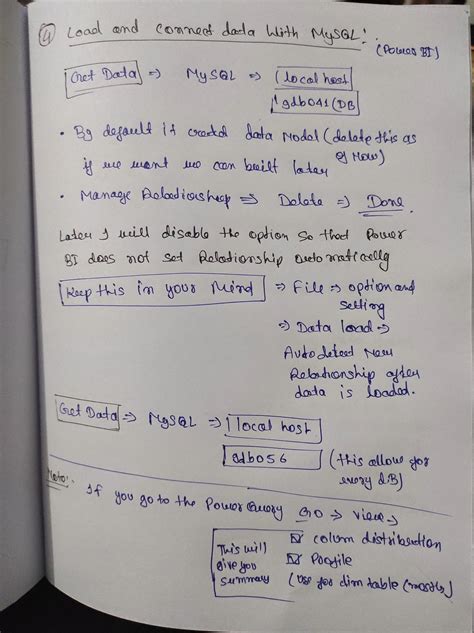 ④ Load and connect data With MySQL!
(Power BI)
Get Data ⇒ MySQL ⇒ local host
gdb041 (DB
• By default it created data Model (delete this as
of Now)
if we want we can built later
• Manage Relationship ⇒ Delete ⇒ Done
Later I will disable the option so that Power
BI does not set Relationship automatically
Keep this in your Mind ⇒ File ⇒ option and
setting
⇒ Data load ⇒
Auto detect New
Relationship after
data is loaded.
Get Data ⇒ MySQL ⇒ local host
gdb056 (this allow for
every DB)
Note:
If you go to the Power Query GO ⇒ View ⇒
This will
give you
summary
☑ colum distribution
☑ Profile
(Use for dim table (mostly)